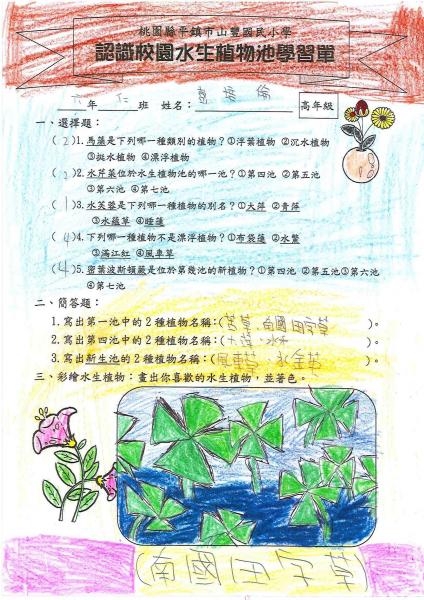 桃園縣平鎮市山豐國民小學
認識校園水生植物池學習單
六年 仁班 姓名： 高年級
一、選擇題：
(2)1.馬藻是下列哪一種類別的植物？①浮葉植物 ②沉水植物
③挺水植物 ④漂浮植物
(2)2.水芹菜位於水生植物池的哪一池？①第四池 ②第五池
③第六池 ④第七池
(1)3.水芙蓉是下列哪一種植物的別名？①大萍 ②青萍
③水蘊草 ④睡蓮
(4)4.下列哪一種植物不是漂浮植物？①布袋蓮 ②水鱉
③滿江紅 ④風車草
(4)5.密葉波斯頓蕨是位於第幾池的新植物？①第四池 ②第五池③第六池
④第七池
二、簡答題：
1.寫出第一池中的2種植物名稱：(莕草、南國田字草)。
2.寫出第四池中的2種植物名稱：(大萍、水禾)。
3.寫出新生池的2種植物名稱：(風車草、水金英)。
三、彩繪水生植物：畫出你喜歡的水生植物，並著色。
(南國田字草)